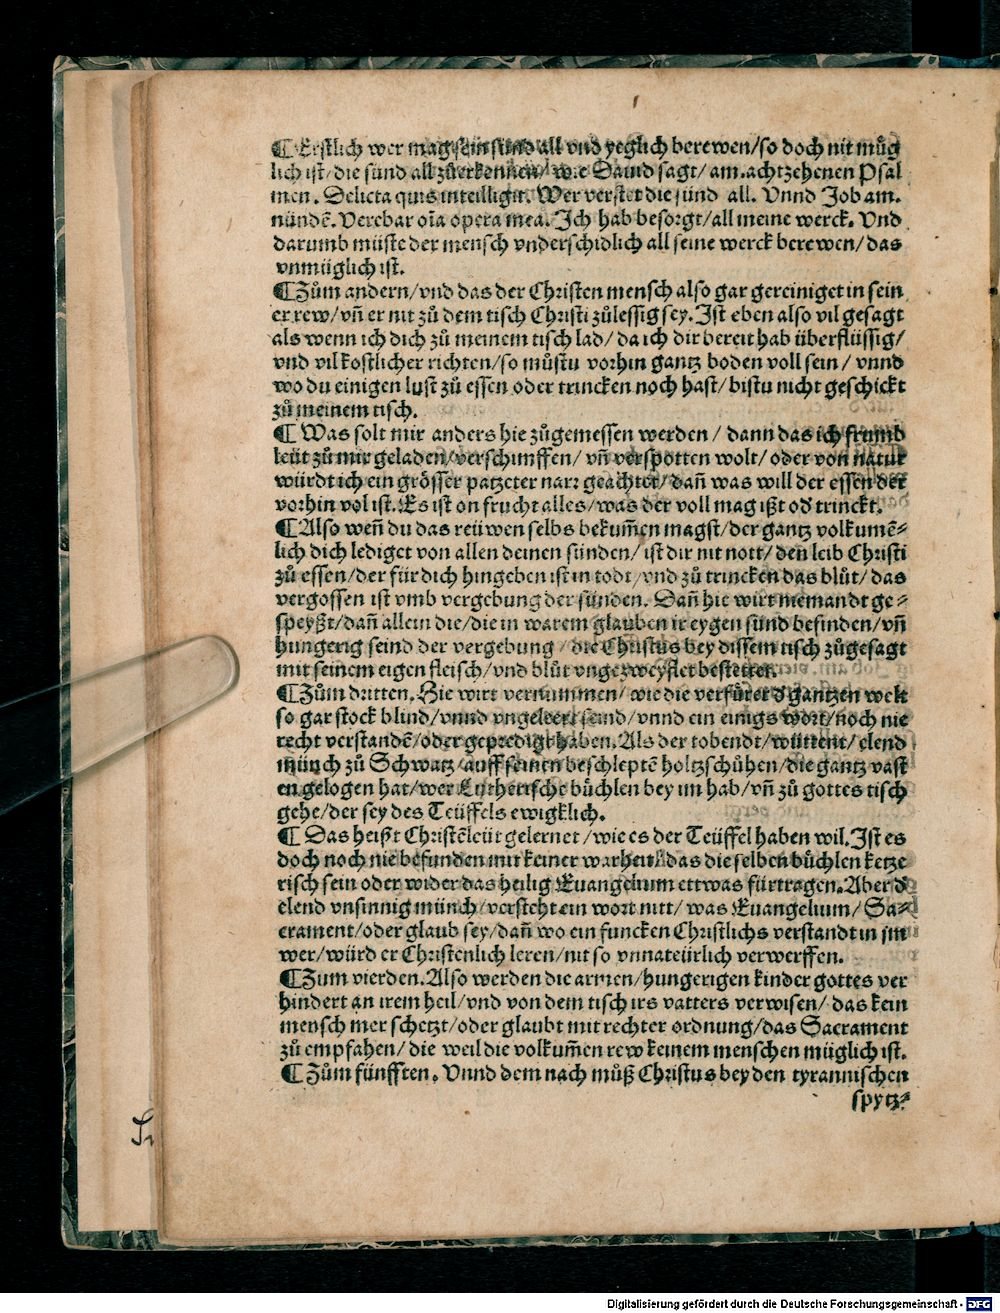 ¶ Erstlich wer mag sein sünd all vnd yeglich berewen/so doch nit můg
lich ist/die sünd all zůerkennen/wie Dauid sagt/am.achtzehenen Psal
men. Delicta quis intelligit. Wer verstet die sünd all. Vnnd Job am.
nündē. Verebar oīa opera mea. Ich hab besorgt/all meine werck. Vnd
darumb müste der mensch vnderschidlich all seine werck berewen/das
vnmüglich ist.
¶ Zům andern/vnd das der Christen mensch also gar gereiniget in sein
er rew/vn̄ er nit zů dem tisch Christi zůlessig sey. Ist eben also vil gesagt
als wenn ich dich zů meinem tisch lad/da ich dir bereit hab überflüssig/
vnd vil kostlicher richten/so můstu vorhin gantz boden voll sein/vnnd
wo du einigen lust zů essen oder trincken noch hast/bistu nicht geschickt
zů meinem tisch.
¶ Was solt mir anders hie zůgemessen werden/dann das ich frumb
leüt zů mir geladen/verschimffen/vn̄ verspotten wolt/oder von natur
würdt ich ein grösser patzeter narr geachtet/dan̄ was will der essen der
vorhin vol ist. Es ist on frucht alles/was der voll mag ißt oď trinckt.
¶ Also wen̄ du das reüwen selbs bekum̄en magst/der gantz volkumē⸗
lich dich lediget von allen deinen sünden/ist dir nit nott/den leib Christi
zů essen/der für dich hingeben ist in todt/vnd zů trincken das blůt/das
vergossen ist vmb vergebung der sünden. Dan̄ hie wirt niemandt ge⸗
speyßt/dan̄ allein die/die in warem glauben ir eygen sünd befinden/vn̄
hungerig seind der vergebung/die Christus bey dissem tisch zůgesagt
mit seinem eigen fleisch/vnd blůt vngezweyflet bestettet.
¶ Zům dritten. Hie wirt vernummen/wie die verfürer ď gantzen welt
so gar stock blind/vnnd vngeleert seind/vnnd ein einigs wort/noch nie
recht verstandē/oder geprediget haben. Als der tobendt/wüttent/elend
münch zů Schwatz/auff seinen beschleptē holtzschůhen/die gantz vast
en gelogen hat/wer Lutherische bůchlen bey im hab/vn̄ zů gottes tisch
gehe/der sey des Teüffels ewigklich.
¶ Das heißt Christēleüt gelernet/wie es der Teüffel haben wil. Ist es
doch noch nie befunden mit keiner warheit/das die selben bůchlen ketze
risch sein oder wider das heilig Euangelium ettwas fürtragen. Aber ď
elend vnsinnig münch/versteht ein wort nitt/was Euangelium/Sa⸗
crament/oder glaub sey/dan̄ wo ein funcken Christlichs verstandt in jm
wer/würd er Christenlich leren/nit so vnnateürlich verwerffen.
¶ Zum vierden. Also werden die armen/hungerigen kinder gottes ver
hindert an irem heil/vnd von dem tisch irs vatters verwisen/das kein
mensch mer schetzt/oder glaubt mit rechter ordnung/das Sacrament
zů empfahen/die weil die volkum̄en rew keinem menschen müglich ist.
¶ Zům fünfften. Vnnd dem nach můß Christus bey den tyrannischen
spytz⸗
Digitalisierung gefördert durch die Deutsche Forschungsgemeinschaft - DFG